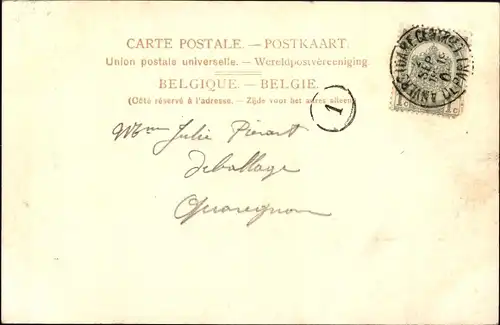 CARTE POSTALE. — POSTKAART.
Union postale universelle. — Wereldpostvereeniging.
BELGIQUE. — BELGIE.
(Côté réservé à l'adresse. — Zijde voor het adres alleen)
1
Julie Piérart
Deballage
Quaregnon
1c 1c